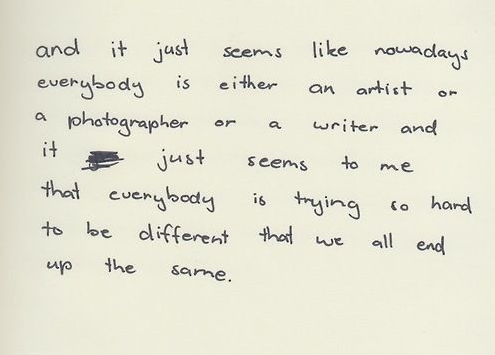 and it just seems like nowadays
everybody is either an artist or
a photographer or a writer and
it just seems to me
that everybody is trying so hard
to be different that we all end
up the same.